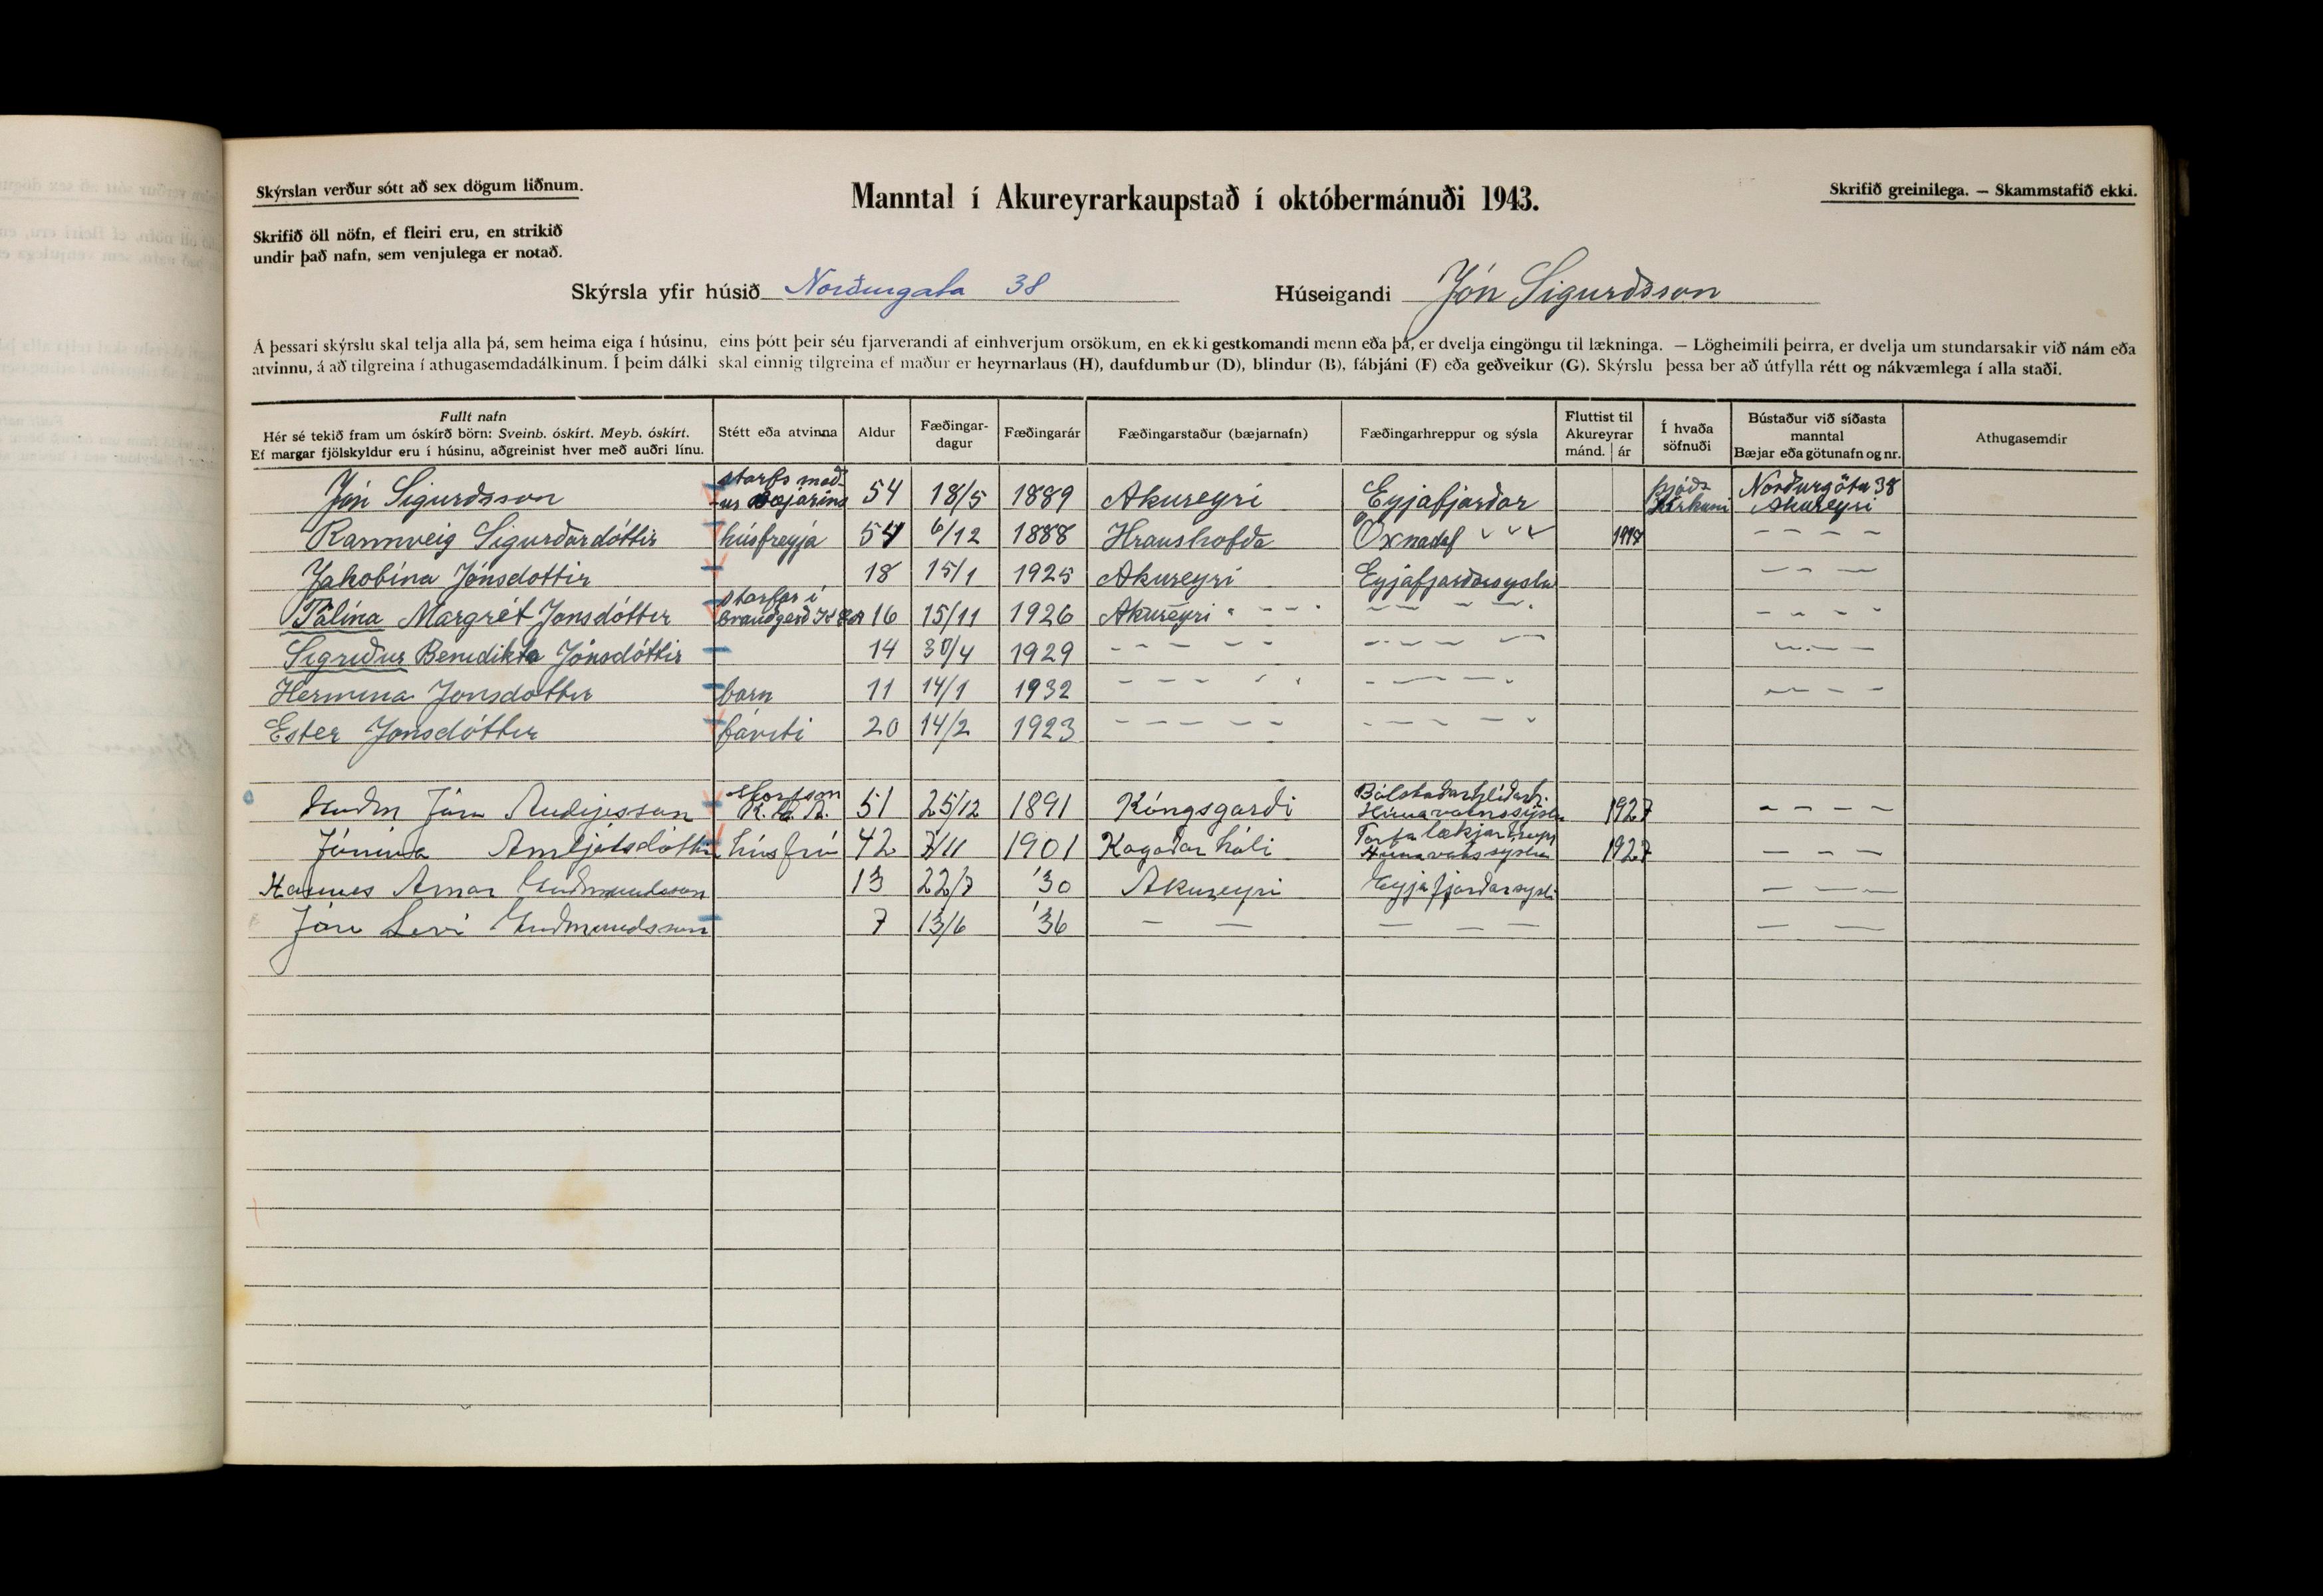 Skýrslan verður sótt að sex dögum liðnum.
Manntal í Akureyrarkaupstað í októbermánuði 1943.
Skrifið greinilega. — Skammstafið ekki.
Skrifið öll nöfn, ef fleiri eru, en strikið
undir það nafn, sem venjulega er notað.
Skýrsla yfir húsið Norðurgata 38 Húseigandi Jón Sigurðsson
Á þessari skýrslu skal telja alla þá, sem heima eiga í húsinu, eins þótt þeir séu fjarverandi af einhverjum orsökum, en ekki gestkomandi menn eða þá, er dvelja eingöngu til lækninga. — Lögheimili þeirra, er dvelja um stundarsakir við nám eða
atvinnu, á að tilgreina í athugasemdadálkinum. Í þeim dálki skal einnig tilgreina ef maður er heyrnarlaus (H), daufdumbur (D), blindur (B), fábjáni (F) eða geðveikur (G). Skýrslu þessa ber að útfylla rétt og nákvæmlega í alla staði.
Fullt nafn
Hér sé tekið fram um óskírð börn: Sveinb. óskírt. Meyb. óskírt.
Ef margar fjölskyldur eru í húsinu, aðgreinist hver með auðri línu.
Stétt eða atvinna
Aldur
Fæðingar-
dagur
Fæðingarár
Fæðingarstaður (bæjarnafn)
Fæðingarhreppur og sýsla
Fluttist til
Akureyrar
mánd. ár
Í hvaða
söfnuði
Bústaður við síðasta
manntal
Bæjar eða götunafn og nr.
Athugasemdir
Jón Sigurðsson starfs mað-ur Bæjarins 54 18/5 1889 Akureyri Eyjafjarðar Þjóðkirkjuni Norðurgötu 38 Akureyri
Rannveig Sigurðardóttir húsfreyja 54 6/12 1888 Hraunshöfða Öxnadal " " " – – – –
Jakobína Jónsdottir 18 15/1 1925 Akureyri Eyjafjarðarsyslu – – –
Pálína Margrét Jónsdóttir starfar í 16 15/11 1926 Akureyri – – – – – – – – – – –
Sigríður Benedikta Jónsdóttir 14 30/4 1929 – – – – – – – – – – – –
Hermina Jonsdottir barn 11 14/1 1932 – – – – – – – – – – – –
Ester Jónsdóttir 20 14/2 1923 – – – – – – – – –
Guðm Jón 51 25/12 1891 Kóngsgarði Bólstaðarhlíðarh. Húnavatnssýslu 1927 – – – –
Jónína Arnljótsdóttir húsfrú 42 7/11 1901 Kagaðarhóli Torfalækjarhrepp Húnavatnssýslu 1927 – – –
Hannes Arnar Guðmundsson 13 22/7 '30 Akureyri Eyjafjarðarsysl. – – –
Jón Leví Guðmundsson 7 13/6 '36 – – – – – – –